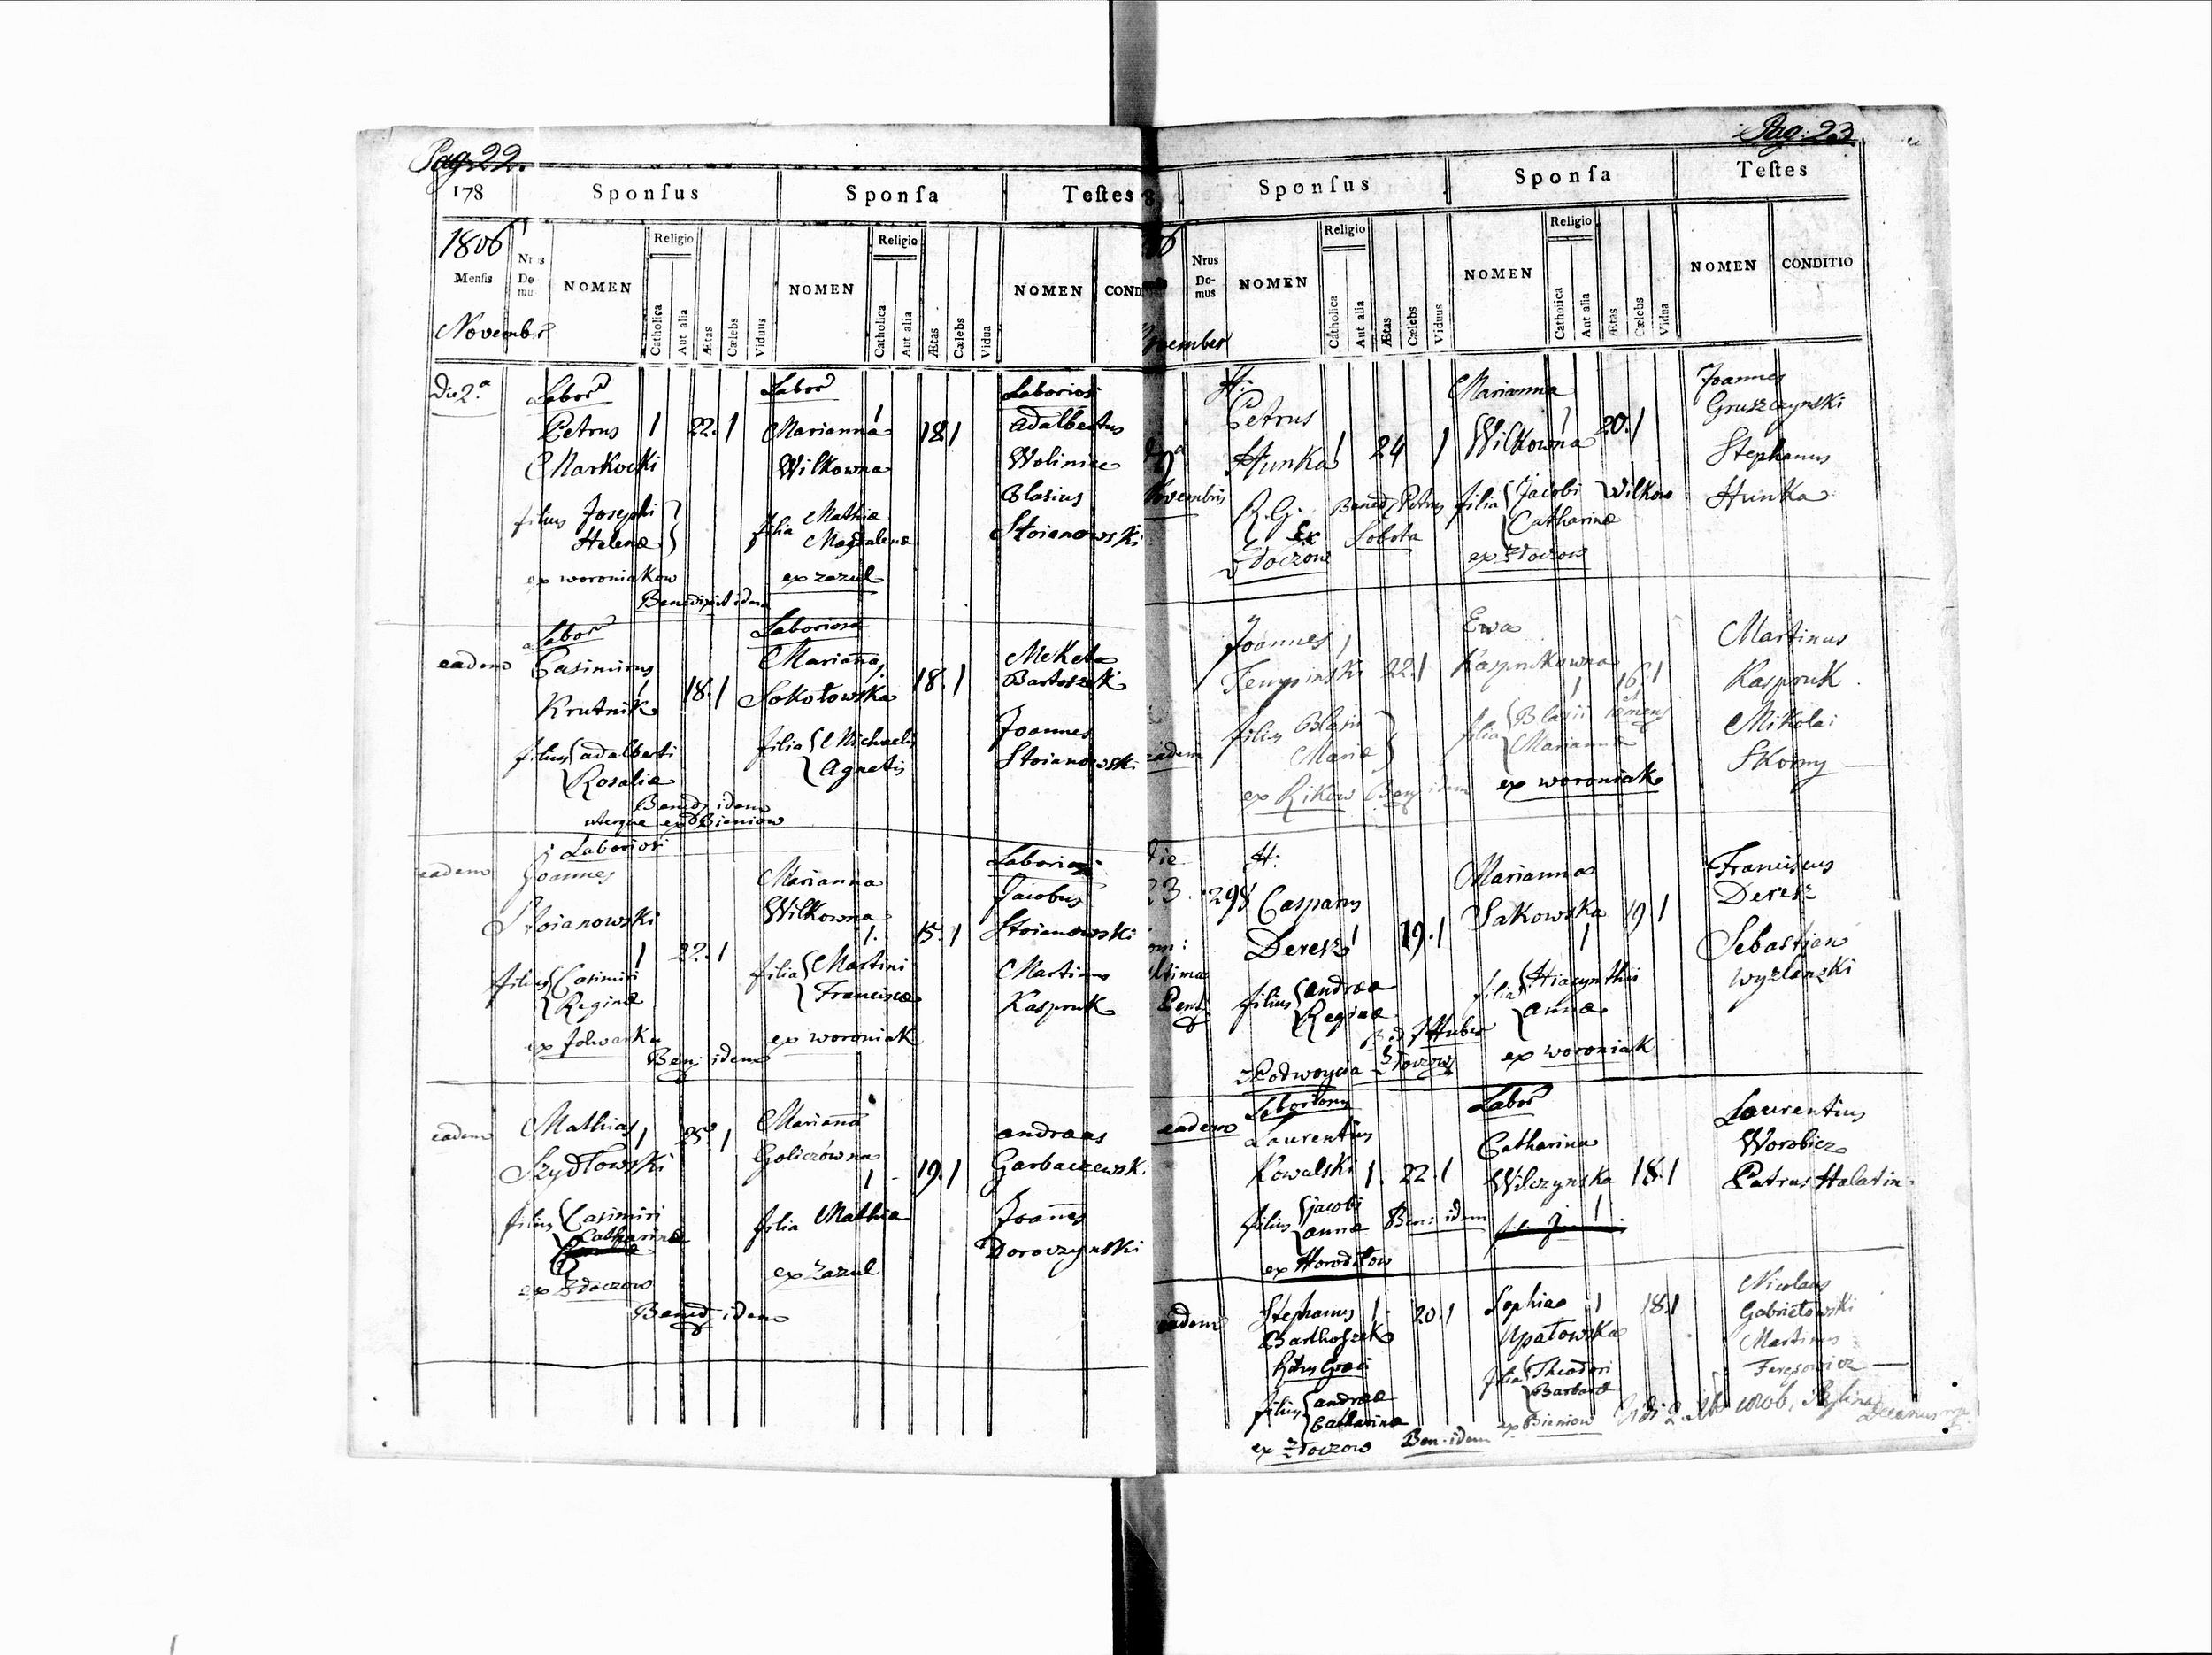 Pag. 22.
178 Sponſus Sponſa Teſtes
1806 Nrus Domus NOMEN Religio Catholica Aut alia Ætas Cælebs Viduus NOMEN Religio Catholica Aut alia Ætas Cælebs Vidua NOMEN COND
Menſis
Novembr
Die 2.ª Labor Labor Laboriosi
Petrus 1 22. 1 Marianna 1 18 1 Adalbertus
Markocki Wilkowna Woliniec
Blasius
filius Josephi filia Mathiæ Stoianowski
Helenæ Magdalenæ
ex woroniakow ex zazul
Benedixit idem
Labor Laboriosa
eadem Casimirus Marianna Meketa
Krutnik 1 18. 1 Sokołowska 18. 1 Bartoszek
filius Adalberti filia Michaelis Joannes
Rosaliæ Agnetis Stoianowski
Bened idem
uterque ex Bieniow
Laboriosi Laboriosi
eadem Joannes Marianna Jacobus
Stoianowski Wilkowna Stoianowski
1 22. 1 1. 15. 1
filius Casimiri filia Martini Martinus
Reginæ Franciscæ Kaspruk
ex folwarku ex woroniak
Ben idem
eadem Mathias 1 25. 1 Marianna Andreas
Szydłowski Goliczówna 1 19. 1 Garbaczewski
filius Casimiri filia Mathiæ Joannes
Catharinæ Doroczynski
ex Złoczow ex Zazul
Bened idem
Pag: 23.
Sponſus Sponſa Teſtes
Nrus Domus NOMEN Religio Catholica Aut alia Ætas Cælebs Viduus NOMEN Religio Catholica Aut alia Ætas Cælebs Vidua NOMEN CONDITIO
vember
H. Marianna Joannes
Petrus Gruszczynski
Hunka 1 24 1 Wilkowna 1 20. 1 Stephanus
vembris R.G. Bened Petrus filia Jacobi Wilkow Hunka
Ex Sobota Catharinæ
Złoczow ex Złoczow
Joannes 1 Ewa Martinus
22. 1 Kasprukowna 1 16. 1 Kaspruk
filius Blasii filia Blasii Mikolai
eadem Mariæ Mariannæ Skorny
ex Rikow Ben idem ex woroniak
H: Marianna Franciscus
23. 298 Casparus Sakowska 19 1 Deresz
Deresz 1 19. 1 1 Sebastian
ltima filius Andreæ filia Hiacynthii Wyzlanzki
Reginæ Annæ
Huber
z Podwoycia Złoczow ex woroniak
eadem Laboriosus Labor Laurentius
Laurentius Catharina Worobicz
Kowalski 1. 22. 1 Wilczynska 18. 1 Petrus Halatin
filius Jacobi Ben: idem 1
Annæ
ex Horodiłow
eadem Stephanus 1 20. 1 Sophia 1 18. 1 Nicolaus
Barthoszek Opatowska Gabriełowski
Ritus Græci Martinus
filius Andreæ filia Theodori
Catharinæ Barbaræ
ex Złoczow Ben. idem ex Bieniow
Decanus